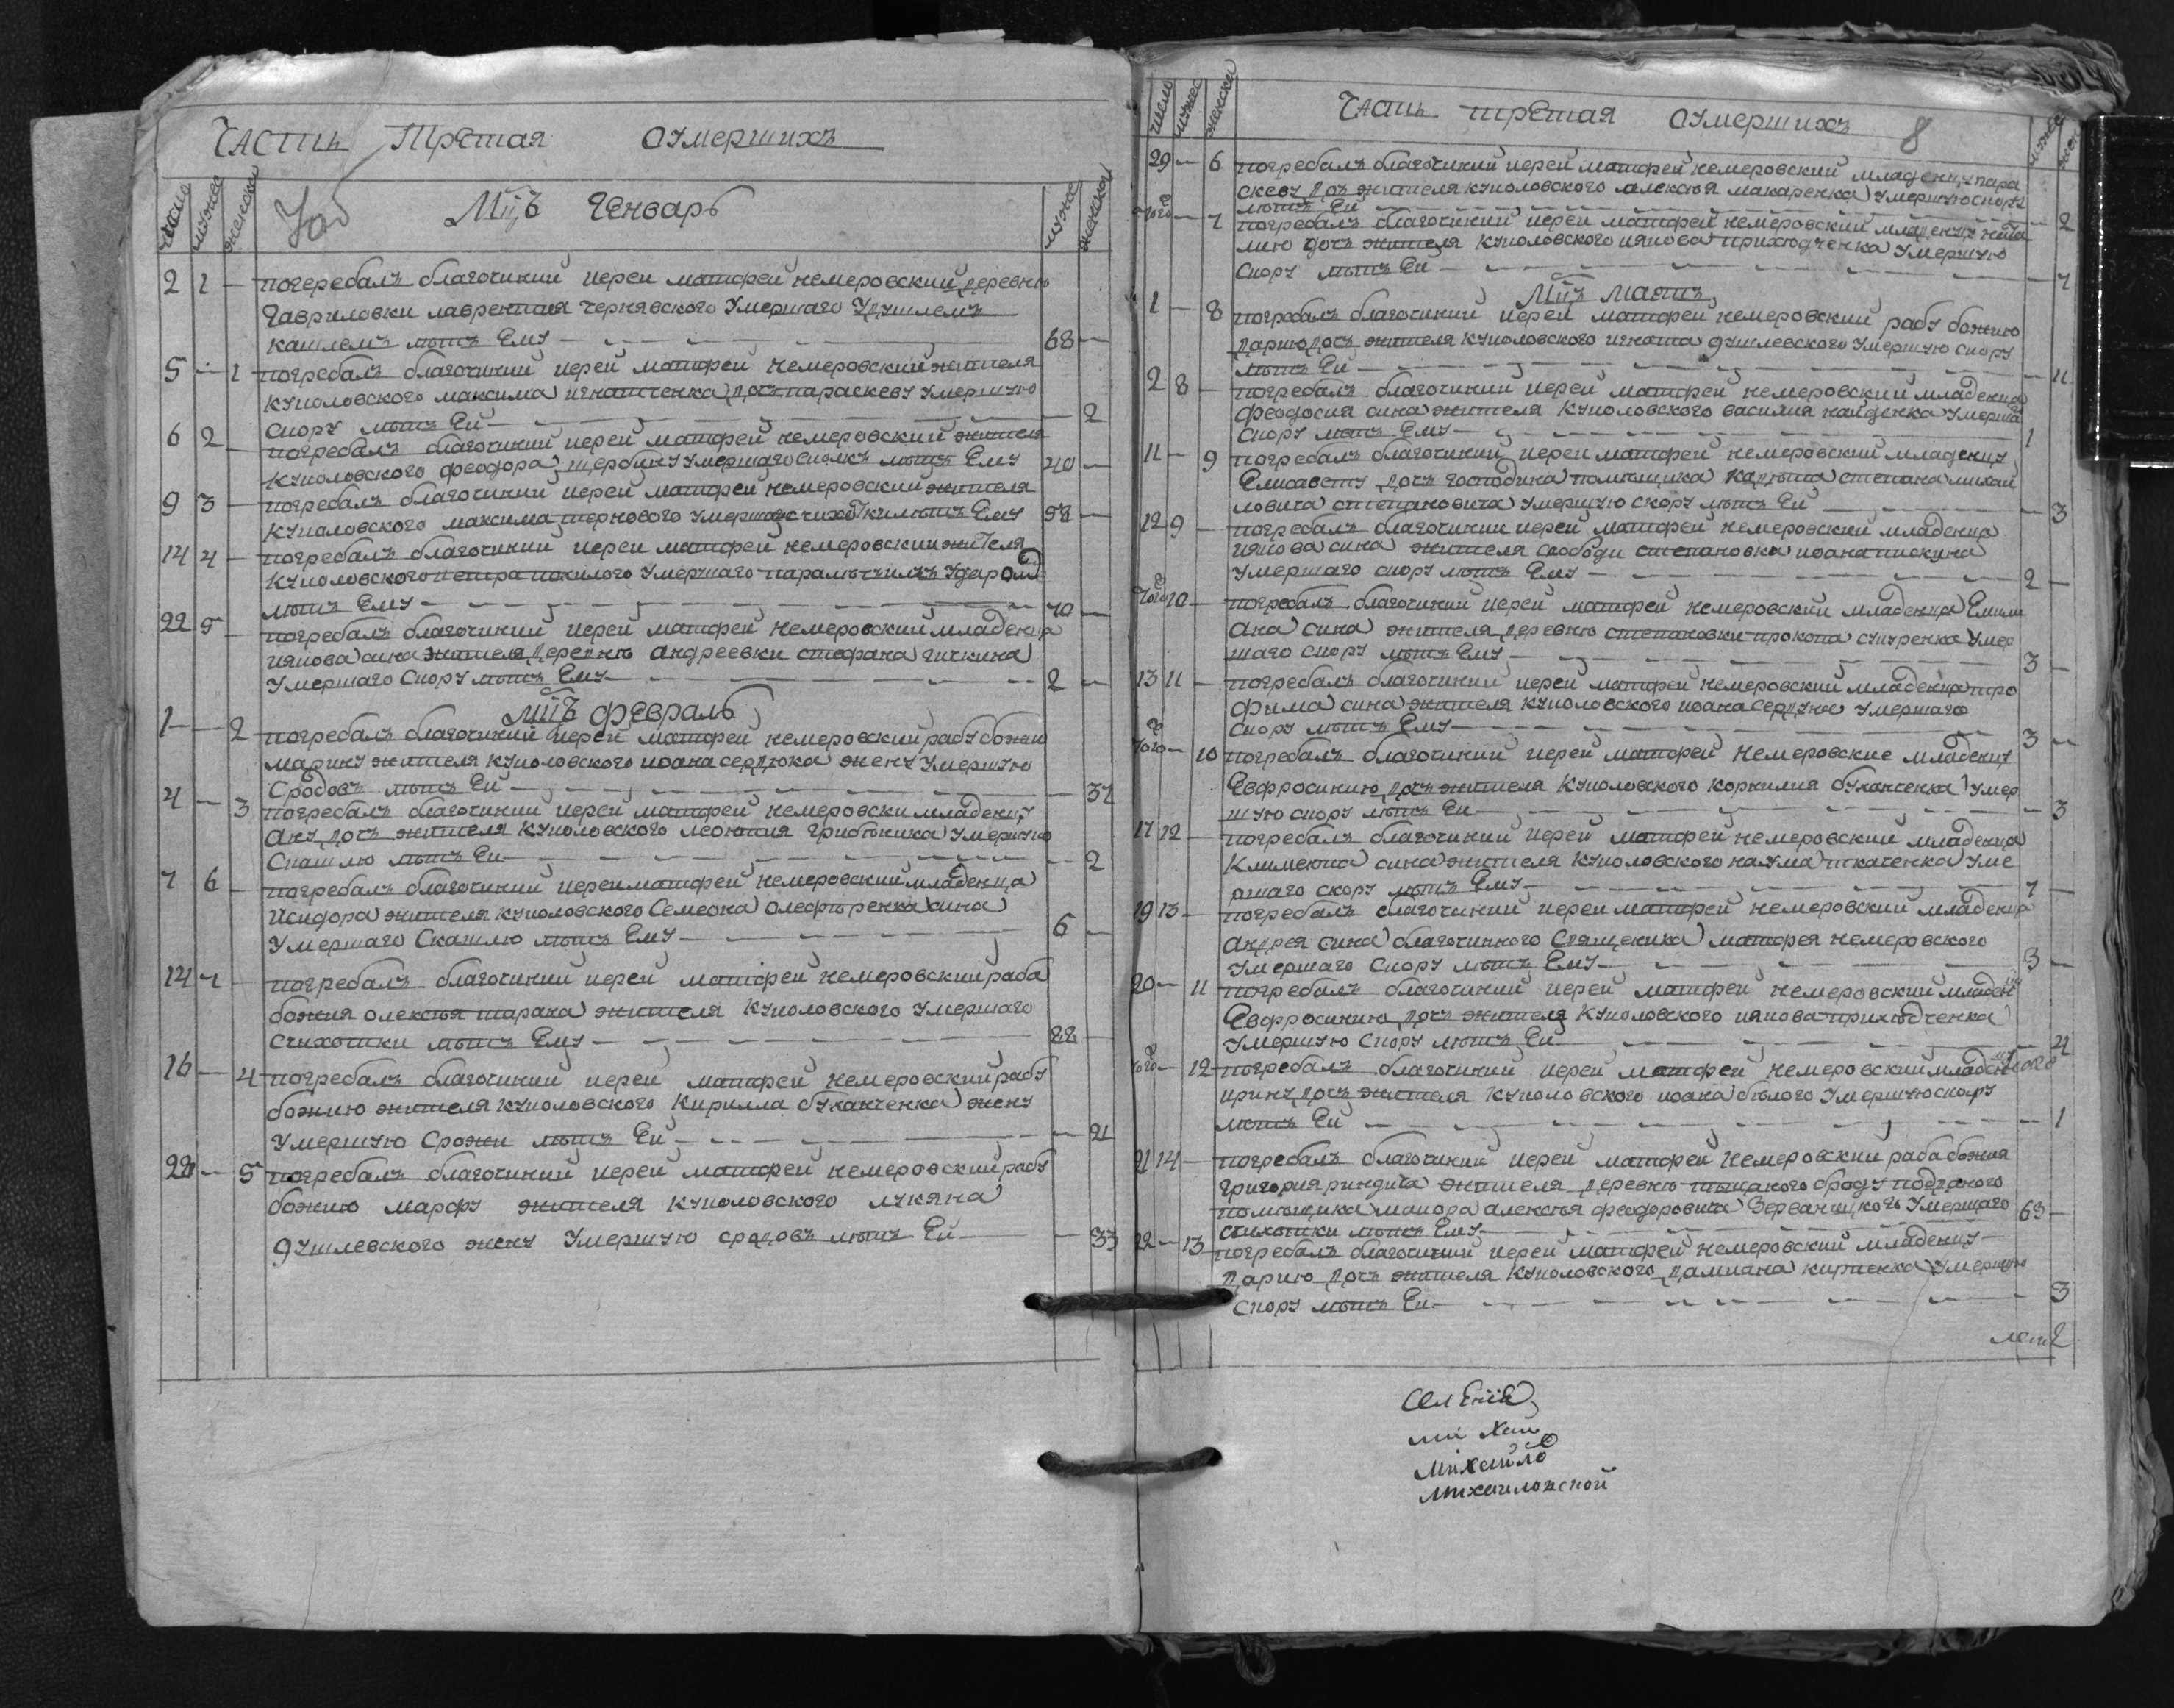 Часть Третая о умершихъ
число мужес женска
мужес женска
Мцъ Генварь
2 1 — погребалъ благочиний иерей матфей немеровский деревнѣ
Гавриловки лаврентия чернявского умершаго удушлемъ
кашлемъ лѣтъ Ему — 68 —
5 — 1 погребалъ благочиний иерей матфей немеровский жителя
куполовского максима игнатченка дочъ параскеву умершую
спору лѣтъ Ей — 2
6 2 погребалъ благочиний иерей матфей немеровский жителя
куполовского феодора щербину умершаго лѣтъ Ему 40 —
9 3 — погребалъ благочиний иерей матфей немеровский жителя
куполовского максима тернового лѣтъ Ему 58 —
14 4 — погребалъ благочиний иерей матфей немеровский жителя
куполовского петра покилого умершаго паралѣчъимъ ударомъ
лѣтъ Ему — 70 —
22 5 — погребалъ благочиний иерей матфей немеровский младенца
иякова сина жителя деревнѣ андреевки стефана гичкина
умершаго спору лѣтъ Ему — 2 —
Мцъ февраль
1 — 2 погребалъ благочиний иерей матфей немеровский рабу божию
марину жителя куполовского иоана сердюка жену умершую
сродовъ лѣтъ Ей — 37
4 — 3 погребалъ благочиний иерей матфей немеровски младеницу
ану дочъ жителя куполовского леонтия грибоника умершую
скашлю лѣтъ Ей — 2
7 6 — погребалъ благочиний иерей матфей немеровский младенца
исидора жителя куполовского семеона олефѣренка сина
умершаго скашлю лѣтъ Ему — 6 —
14 7 — погребалъ благочиний иерей матфей немеровский раба
божия олексѣя шарана жителя куполовского умершаго
счихотики лѣтъ Ему — 88 —
16 — 4 погребалъ благочиний иерей матфей немеровский рабу
божию жителя куполовского кирилла буханченка жену
умершую срожи лѣтъ Ей — 21
28 — 5 погребалъ благочиний иерей матфей немеровский рабу
божию марфу жителя куполовского лукяна
душлевского жену умершую сродовъ лѣтъ Ей — 33
Часть третая о умершихъ 8
число мужес женска
29 — 6 погребалъ благочиний иерей матфей немеровский младеницу пара
скеву дочъ жителя куполовского алексѣя макаренка умершую спору
лѣтъ Ей — 2
того — 7 погребалъ благочиний иерей матфей немеровский младеницу ната
лию дочъ жителя куполовского иякова приходченка умершую
спору лѣтъ Ей — 7
Мцъ Мартъ
1 — 8 погребалъ благочиний иерей матфей немеровский рабу божию
дарию дочъ жителя куполовского игната душлевского умершую спору
лѣтъ Ей — 11
2 8 — погребалъ благочиний иерей матфей немеровский младенца
феодосия сина жителя куполовского василия найденка умерша
спору лѣтъ Ему — 1
11 — 9 погребалъ благочиний иерей матфей немеровский младеницу
Елисавету дочъ господина помѣщика степана михай
ловича степановича умершую скору лѣтъ Ей — 3
12 9 — погребалъ благочиний иерей матфей немеровский младенца
иякова сина жителя слободи степановка иоана пискуна
умершаго спору лѣтъ Ему — 2 —
того 10 — погребалъ благочиний иерей матфей немеровский младенца Емили
ана сина жителя деревнѣ степановки прокопа умер
шаго спору лѣтъ Ему — 3 —
13 11 — погребалъ благочиний иерей матфей немеровский младенца тро
фима сина жителя куполовского иоана умершаго
спору лѣтъ Ему — 3 —
того — 10 погребалъ благочиний иерей матфей немеровские младеницу
Евфросинию дочъ жителя куполовского корнилия буханченка умер
шую спору лѣтъ Ей — 3
17 12 — погребалъ благочиний иерей матфей немеровский младенца
климента сина жителя куполовского наума ткаченка уме
ршаго скору лѣтъ Ему — 7 —
19 13 — погребалъ благочиний иерей матфей немеровский младенца
андрея сина благочинного священика матфея немеровского
умершаго спору лѣтъ Ему — 3 —
20 — 11 погребалъ благочиний иерей матфей немеровский младен
Евфросинию дочъ жителя куполовского иякова приходченка
умершую спору лѣтъ Ей — 4
того — 12 погребалъ благочиний иерей матфей немеровский младен
ирину дочъ жителя куполовского иоана бѣлого умершую спору
лѣтъ Ей — 1
21 14 — погребалъ благочиний иерей матфей немеровский раба божия
григория риндича жителя деревнѣ броду подданого
помѣщика маиора алексѣя феодоровича умершаго
счихотики лѣтъ Ему — 63 —
22 — 13 погребалъ благочиний иерей матфей немеровский младеницу
дарию дочъ жителя куполовского дамиана кириенка умершую
спору лѣтъ Ей — 3
2
Михайло